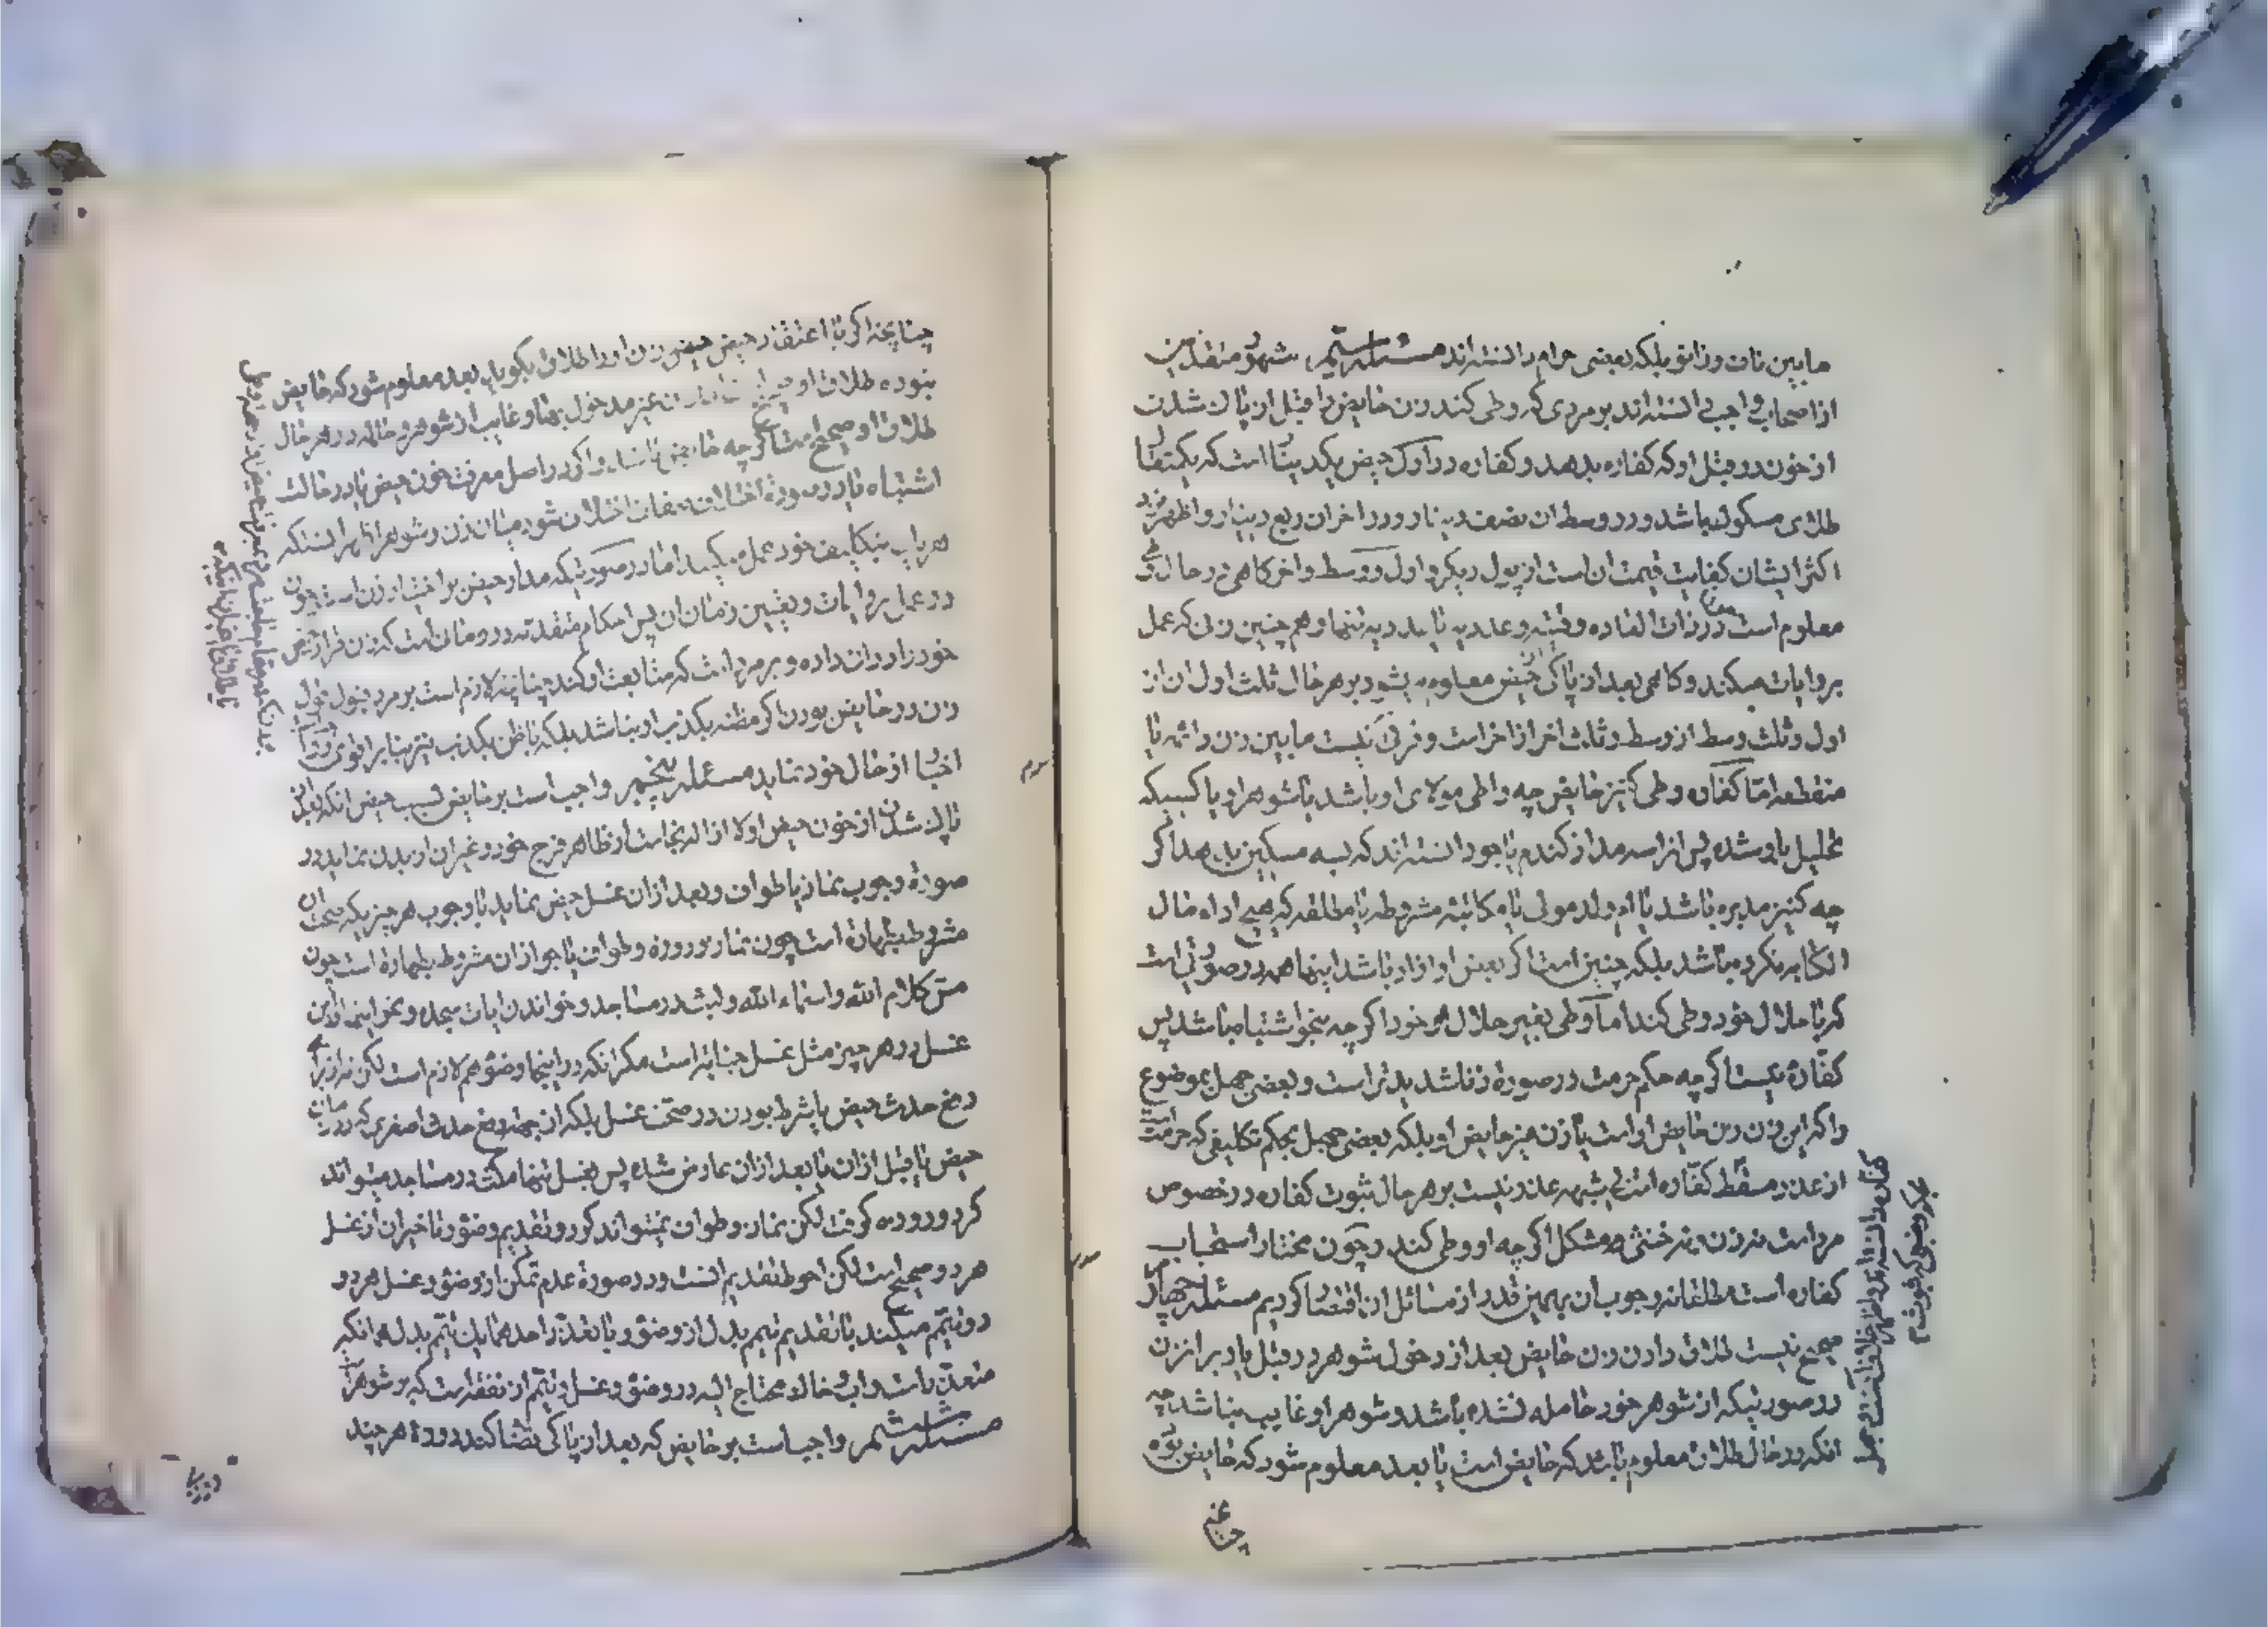 مابین ناف و زانو بلکه بعضی حرام دانسته‌اند مسئله سیم مشهور متقدمین
از اصحاب واجب دانسته‌اند بر مردی که وطی کند زن حایض را قبل از پاک شدن
از خون در قبل او که کفاره بدهد و کفاره در اول حیض یکدینار است که یکمثقال
طلای مسکوک باشد و در وسط ان نصف دینار و در اخر ان ربع دینار و اظهر نزد
اکثر ایشان کفایت قیمت ان است از پول دیگر و اول و وسط و اخر کاهی در حال وطی
معلوم است در ذات العاده وقتیه و عددیه یا عددیه تنها و هم چنین زنی که عمل
بروایات میکند و کاهی بعد از پاکی حیض معلوم میشود بر هر حال ثلث اول ان از
اول و ثلث وسط از وسط و ثلث اخر از اخر است و فرقی نیست مابین زن دائمه یا
منقطعه امّا کفاره وطی کنیز حایض چه واطی مولای او باشد یا شوهر او یا کسیکه
تحلیل باو شده پس انرا سه مد از کندم یا جو دانسته‌اند که بسه مسکین بدهد اکر
چه کنیز مدبره باشد یا ام ولد مولی یا مکاتبه مشروطه یا مطلقه که هیچ اداء مال
الکتابه نکرده باشد بلکه چنین است اکر بعض او ازاد باشد اینها همه در صورتی است
که با حلال خود وطی کند اما وطی بغیر حلال خود اکر چه بنحو اشتباه باشد پس
کفاره نیست اکر چه حکم حرمت در صورة زنا شدیدتر است و بعضی جهل بموضوع
را که این زن زن حایض او است یا زن غیر حایض او بلکه بعضی جهل بحکم تکلیفی که حرمت است
از عذر مسقط کفاره است بی شبهه عذر نیست بر هر حال ثبوت کفاره در خصوص
مرد است نه زن و نه خنثی مشکل اکر چه او وطی کند و چون مختار استحباب
کفاره است مطلقا نه وجوب ان بهمین قدر از مسائل ان اقتصار کردیم مسئله چهارم
صحیح نیست طلاق دادن زن حایض بعد از دخول شوهر در قبل یا دبر انزن
در صورتیکه از شوهر خود حامله نشده باشد و شوهر او غایب نباشد چه
انکه در حال طلاق معلوم باشد که حایض است یا بعد معلوم شود که حایض بوده
چنانچه
چنانچه اکر با اعتقاد حیض زن او را طلاق بکوید بعد معلوم شود که حایض
نبوده طلاق او صحیح غیر مدخول بها و غایب از شوهر و حامله در هر حال
طلاق او صحیح است اکر چه حایض باشد و اکر در اصل معرفت خون حیض یا در حالت
اشتباه یا در صورة اختلاف صفات اختلاف شود میان زن و شوهر اظهر انستکه
هر یک بتکلیف خود عمل میکند اما در صورتیکه مدار حیض بر اختیار زن است چون
در عمل بروایات و تعیین زمان ان پس احکام متقدمه در زمان است که زن قرار حیض
خود را در ان داده و بر مرد است که متابعت او کند چنانچه لازم است بر مرد قبول قول
زن در حایض بودن اکر مظنه بکذب او نباشد بلکه با ظن بکذب نیز بنا بر اقوی
اخبار از حال خود نماید مسئله پنجم واجب است بر حایض بسبب حیض انکه بعد از
پاک شدن از خون حیض اولا ازاله نجاست از ظاهر فرج خود و غیر ان از بدن نماید در
صورة وجوب نماز یا طواف و بعد از ان غسل حیض نماید با وجوب هر چیزیکه صحت ان
مشروط بطهارة است چون نماز و روزه و طواف یا جواز ان مشروط بطهارة است چون
مس کلام الله و اسماء الله و لبث در مساجد و خواندن ایات سجده و نحو اینها و این
غسل در هر چیز مثل غسل جنابة است مکر انکه در اینجا وضو هم لازم است لکن نه از برای
رفع حدث حیض یا شرط بودن در صحت غسل بلکه از جهة رفع حدث اصغری که در زمان
حیض یا قبل از ان یا بعد از ان عارض شده پس بغسل تنها مکث در مساجد میتواند
کرد و روزه کرفت لکن نماز و طواف نمیتواند کرد و تقدیم وضو و تاخیر ان از غسل
هر دو صحیح است لکن احوط تقدیم انست و در صورة عدم تمکن از وضو و غسل هر دو
دو تیمم میکند با تقدیم تیمم بدل از وضو و با تعذر احدهما یک تیمم بدل همانکه
متعذر باشد و اب و خاک محتاج الیه در وضو و غسل و تیمم از نفقه است که بر شوهر است
مسئله ششم واجب است بر حایض که بعد از پاکی قضا کند روزهٔ هر چند